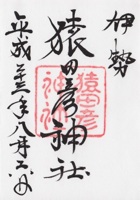 伊勢
猿田彦神社
平成二十三年八月六日
猿田彦
神社